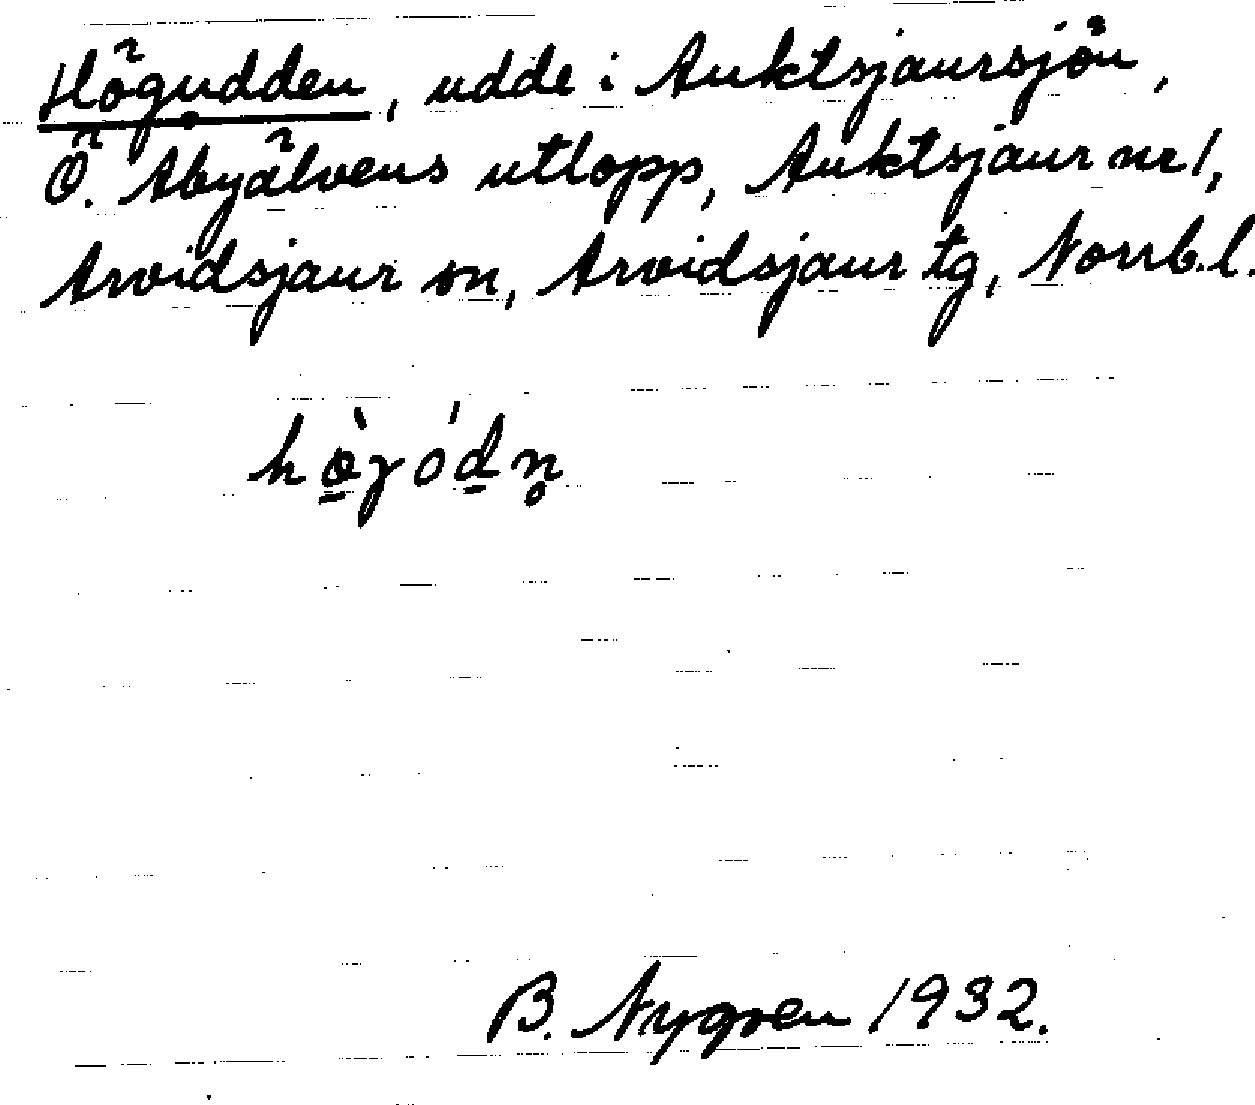 Högudden, udde i Auktsjaursjön,
Ö. Abyälvens utlopp, Auktsjaur nr 1,
Arvidsjaur sn, Arvidsjaur tg, Norrb. l.
hø̱̀γóḏn̥
B. Nygren 1932.